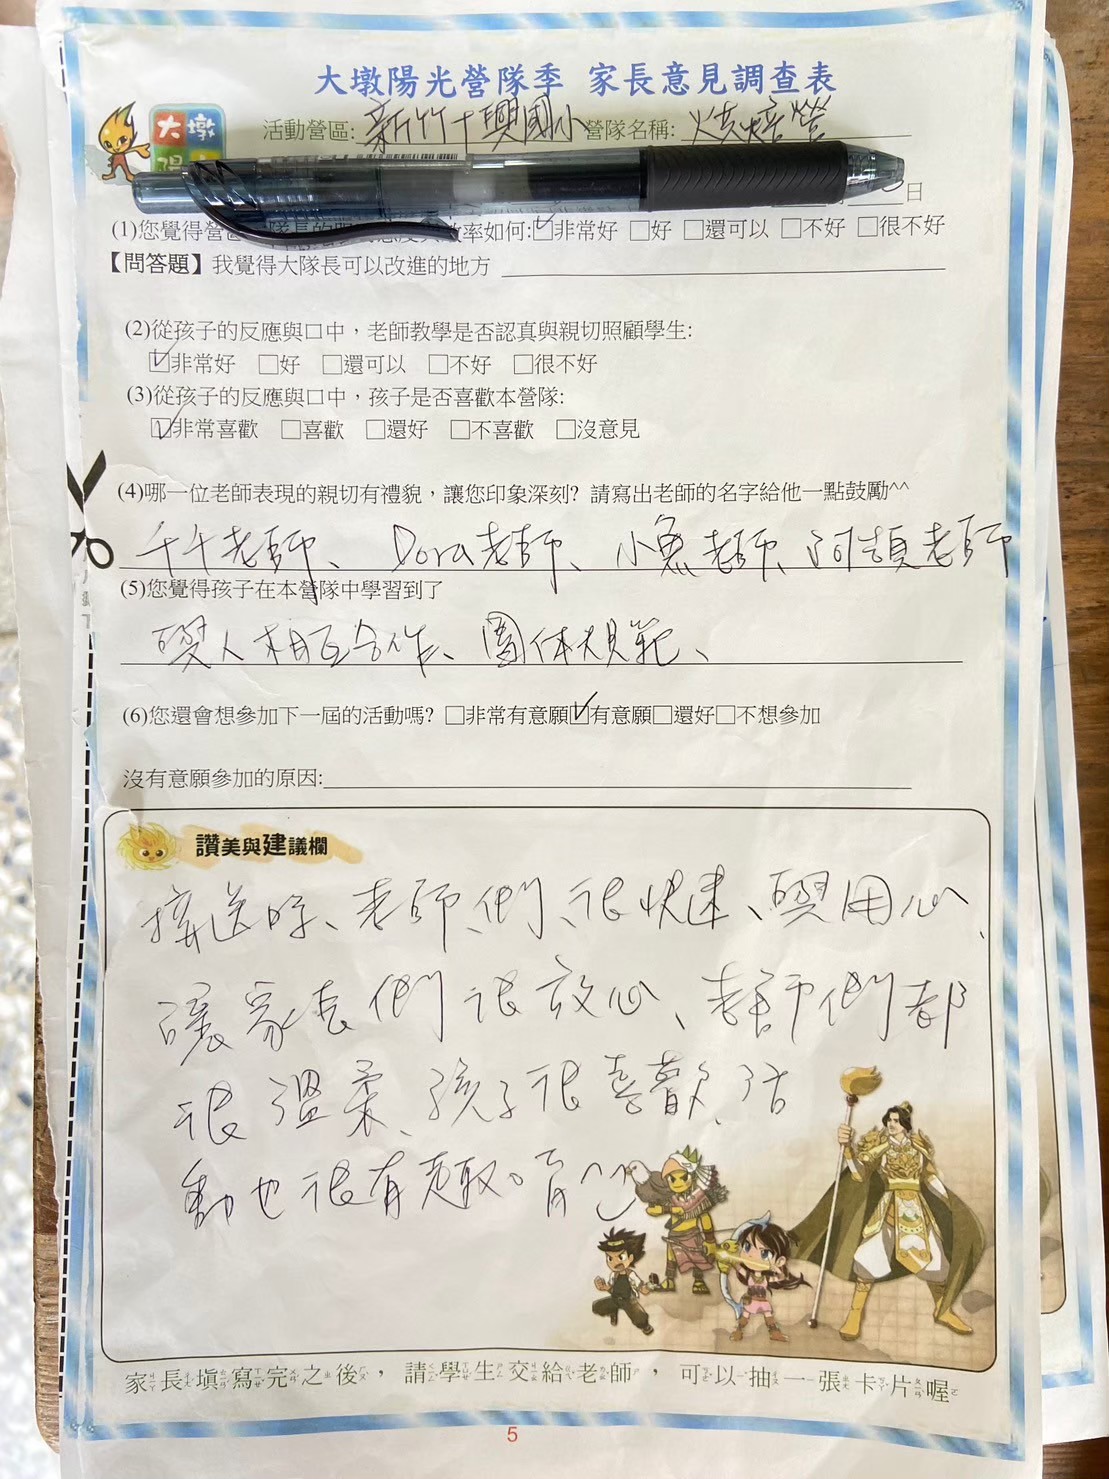 大墩陽光營隊季 家長意見調查表
大墩
活動營區: 新竹十興國小 營隊名稱: 烘焙營
日
(1)您覺得營 率如何:☑非常好 □好 □還可以 □不好 □很不好
【問答題】我覺得大隊長可以改進的地方
(2)從孩子的反應與口中，老師教學是否認真與親切照顧學生:
☑非常好 □好 □還可以 □不好 □很不好
(3)從孩子的反應與口中，孩子是否喜歡本營隊:
☑非常喜歡 □喜歡 □還好 □不喜歡 □沒意見
(4)哪一位老師表現的親切有禮貌，讓您印象深刻? 請寫出老師的名字給他一點鼓勵^^
千千老師、Dora老師、小魚老師、河頭老師
(5)您覺得孩子在本營隊中學習到了
與人相互合作、團体規範、
(6)您還會想參加下一屆的活動嗎? □非常有意願☑有意願□還好□不想參加
沒有意願參加的原因:
讚美與建議欄
接送時、老師們、很快速、與用心、
讓家長們很放心、老師們都
很溫柔、孩子很喜歡、活
動也很有趣。
家長填寫完之後，請學生交給老師，可以抽一張卡片喔
5